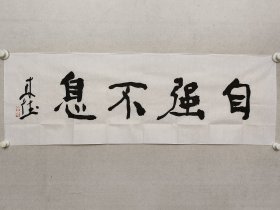 自强不息